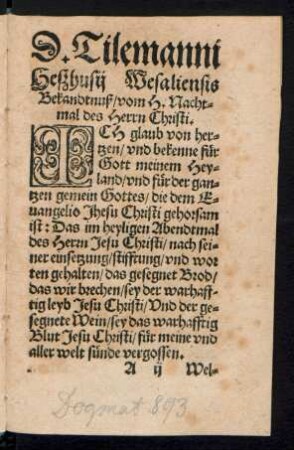 D. Tilemanni
Heßhusij Wesaliensis
Bekandtnuß/vom H. Nacht-
mal des Herrn Christi.
ICH glaub von her-
tzen/vnd bekenne für
Gott meinem Hey-
land/vnd für der gan-
tzen gemein Gottes/die dem E-
uangelio Jhesu Christi gehorsam
ist: Das im heyligen Abendtmal
des Herrn Jesu Christi/nach sei-
ner einsetzung/stifftung/vnd wor
ten gehalten/das gesegnet Brod/
das wir brechen/sey der warhaff-
tig leyb Jesu Christi/Vnd der ge-
segnete Wein/sey das warhafftig
Blut Jesu Christi/für meine vnd
aller welt sünde vergossen.
A ij Wel-
Dogmat. 893